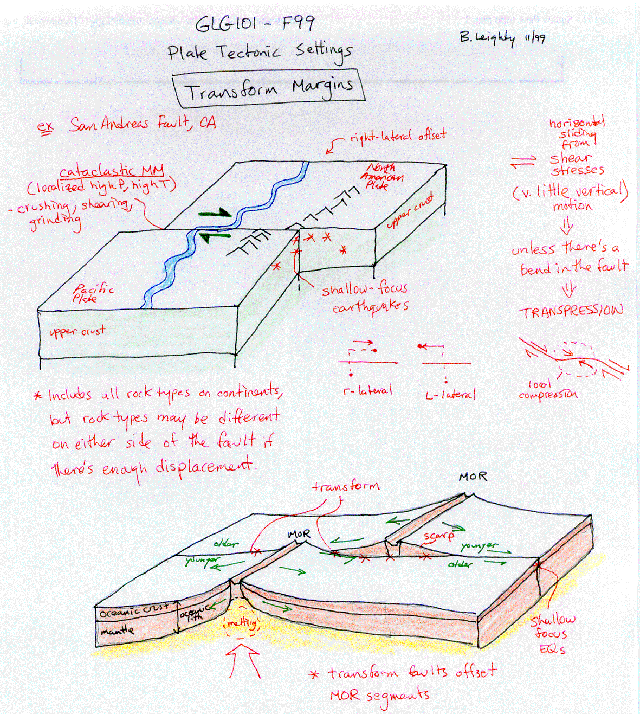 GLG101 - F99
B. Leighty 11/99
Plate Tectonic Settings
Transform Margins
ex San Andreas Fault, CA
right-lateral offset
cataclastic MM
(localized high P, high T)
- crushing, shearing,
grinding
North
American
Plate
upper crust
Pacific
Plate
upper crust
shallow-focus
earthquakes
horizontal
sliding
from
shear
stresses
(v. little vertical)
motion
unless there's a
bend in the fault
TRANSPRESSION
r-lateral
L-lateral
local
compression
* Includes all rock types on continents,
but rock types may be different
on either side of the fault if
there's enough displacement.
transform
MOR
MOR
older
younger
scarp
younger
older
oceanic crust
mantle
oceanic
lith
melting
shallow
focus
EQs
* transform faults offset
MOR segments